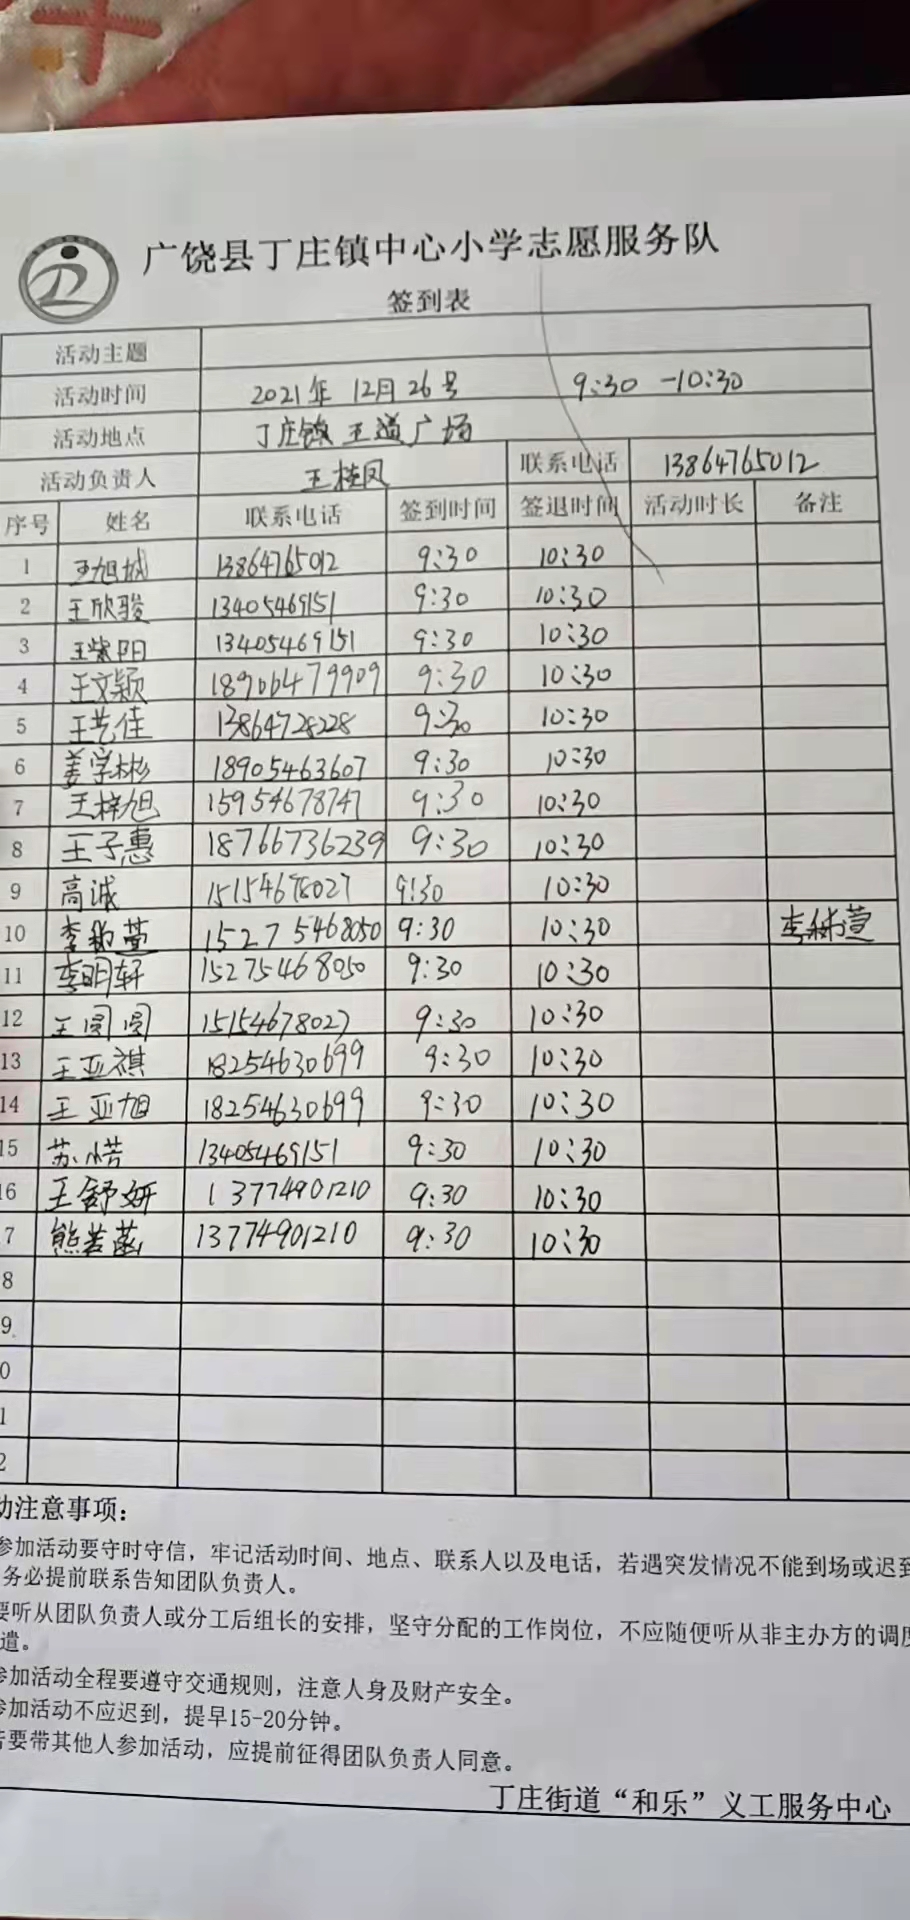 广饶县丁庄镇中心小学志愿服务队
签到表
活动主题
活动时间 2021年 12月26号 9:30 -10:30
活动地点 丁庄镇 王道广场
活动负责人 王桂凤 联系电话 13864765012
序号 姓名 联系电话 签到时间 签退时间 活动时长 备注
1 王旭城 13864765012 9:30 10:30
2 王欣骏 13405469151 9:30 10:30
3 王紫阳 13405469151 9:30 10:30
4 王文颖 18906479909 9:30 10:30
5 王艺佳 13864728228 9:30 10:30
6 姜学彬 18905463607 9:30 10:30
7 王梓旭 15954678747 9:30 10:30
8 王子惠 18766736239 9:30 10:30
9 高诚 15154678027 9:30 10:30
10 李 萱 15275468050 9:30 10:30 李 萱
11 李明轩 15275468050 9:30 10:30
12 王圆圆 15154678027 9:30 10:30
13 王亚祺 18254630699 9:30 10:30
14 王亚旭 18254630699 9:30 10:30
15 苏 13405469151 9:30 10:30
16 王舒妍 13774901210 9:30 10:30
7 熊若菡 13774901210 9:30 10:30
8
9
0
1
2
动注意事项：
参加活动要守时守信，牢记活动时间、地点、联系人以及电话，若遇突发情况不能到场或迟到
务必提前联系告知团队负责人。
要听从团队负责人或分工后组长的安排，坚守分配的工作岗位，不应随便听从非主办方的调度
遣。
参加活动全程要遵守交通规则，注意人身及财产安全。
参加活动不应迟到，提早15-20分钟。
若要带其他人参加活动，应提前征得团队负责人同意。
丁庄街道“和乐”义工服务中心